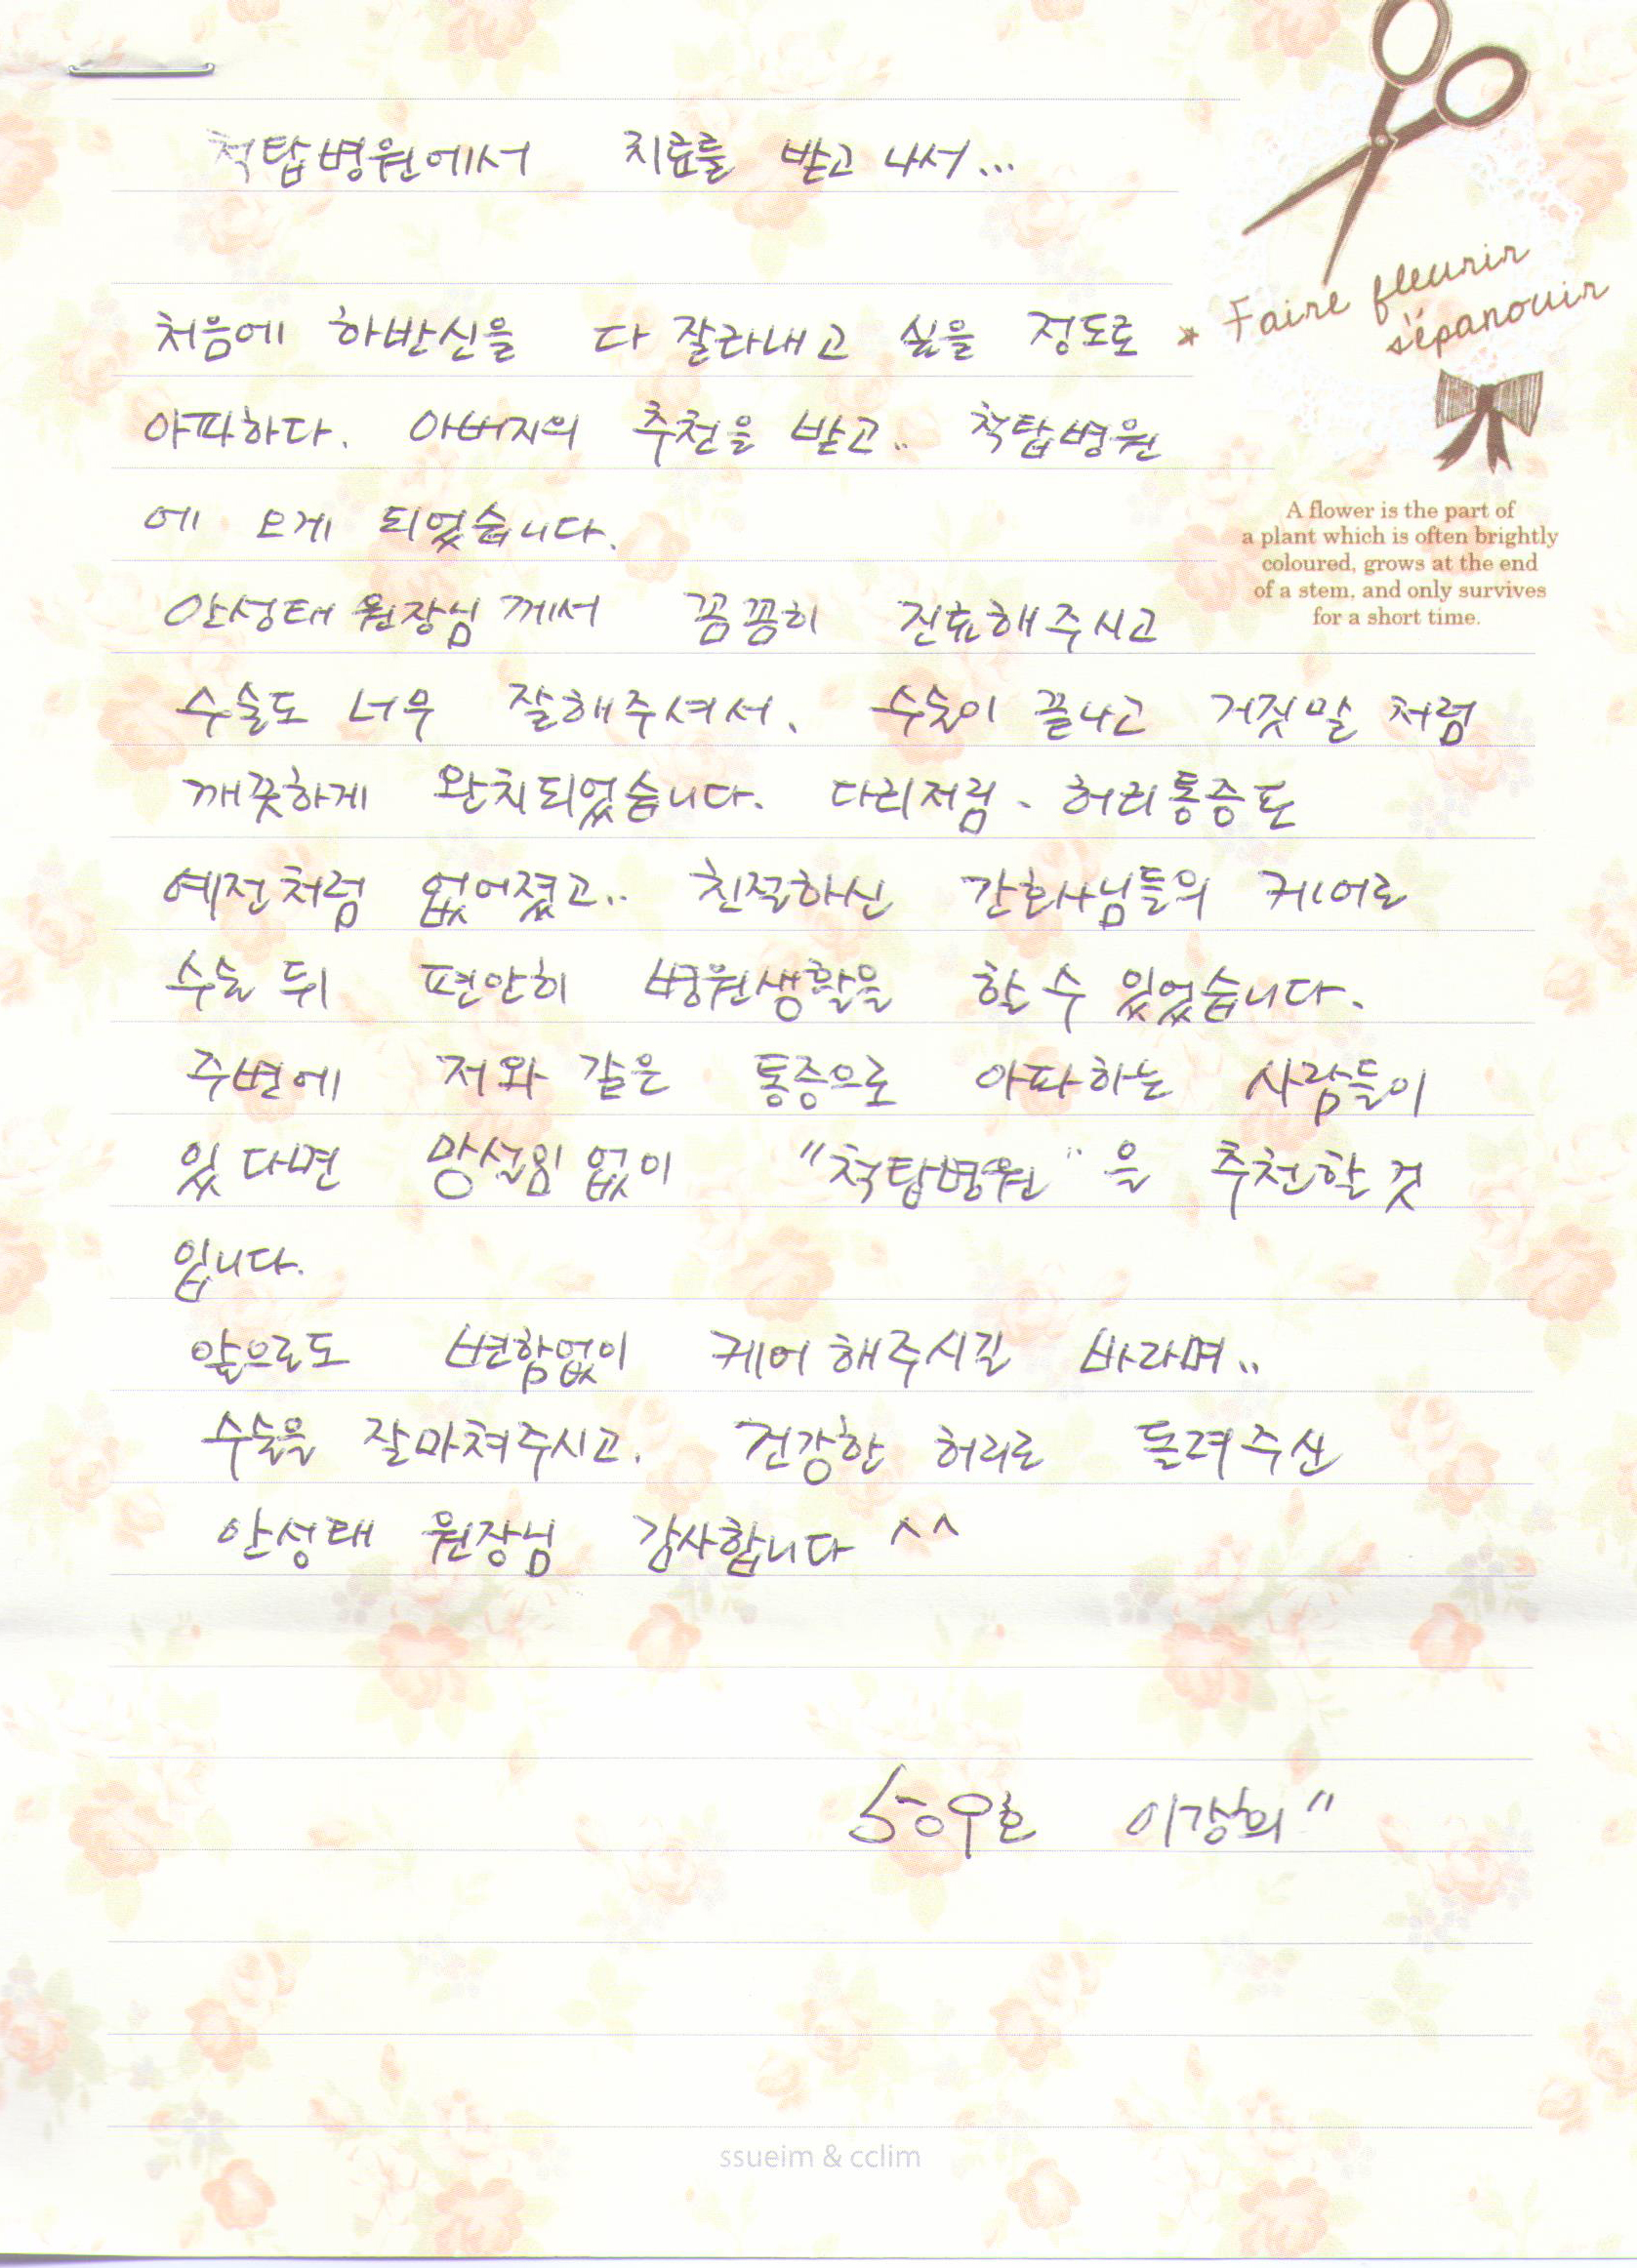 척탑병원에서 치료를 받고 나서...
처음에 하반신을 다 잘라내고 싶을 정도로
아파하다. 아버지의 추천을 받고.. 척탑병원
에 오게 되었습니다.
안성태 원장님께서 꼼꼼히 진료해주시고
수술도 너무 잘해주셔서, 수술이 끝나고 거짓말 처럼
깨끗하게 완치되었습니다. 다리저림, 허리통증도
예전처럼 없어졌고.. 친절하신 간호사님들의 케어로
수술 뒤 편안히 병원생활을 할 수 있었습니다.
주변에 저와 같은 통증으로 아파하는 사람들이
있다면 망설임 없이 "척탑병원"을 추천할 것
입니다.
앞으로도 변함없이 케어 해주시길 바라며..
수술을 잘마쳐주시고. 건강한 허리로 돌려주신
안성태 원장님 감사합니다 ^^
우호 이강희"
Faire fleurir
s'épanouir
A flower is the part of
a plant which is often brightly
coloured, grows at the end
of a stem, and only survives
for a short time.
ssueim & cclim